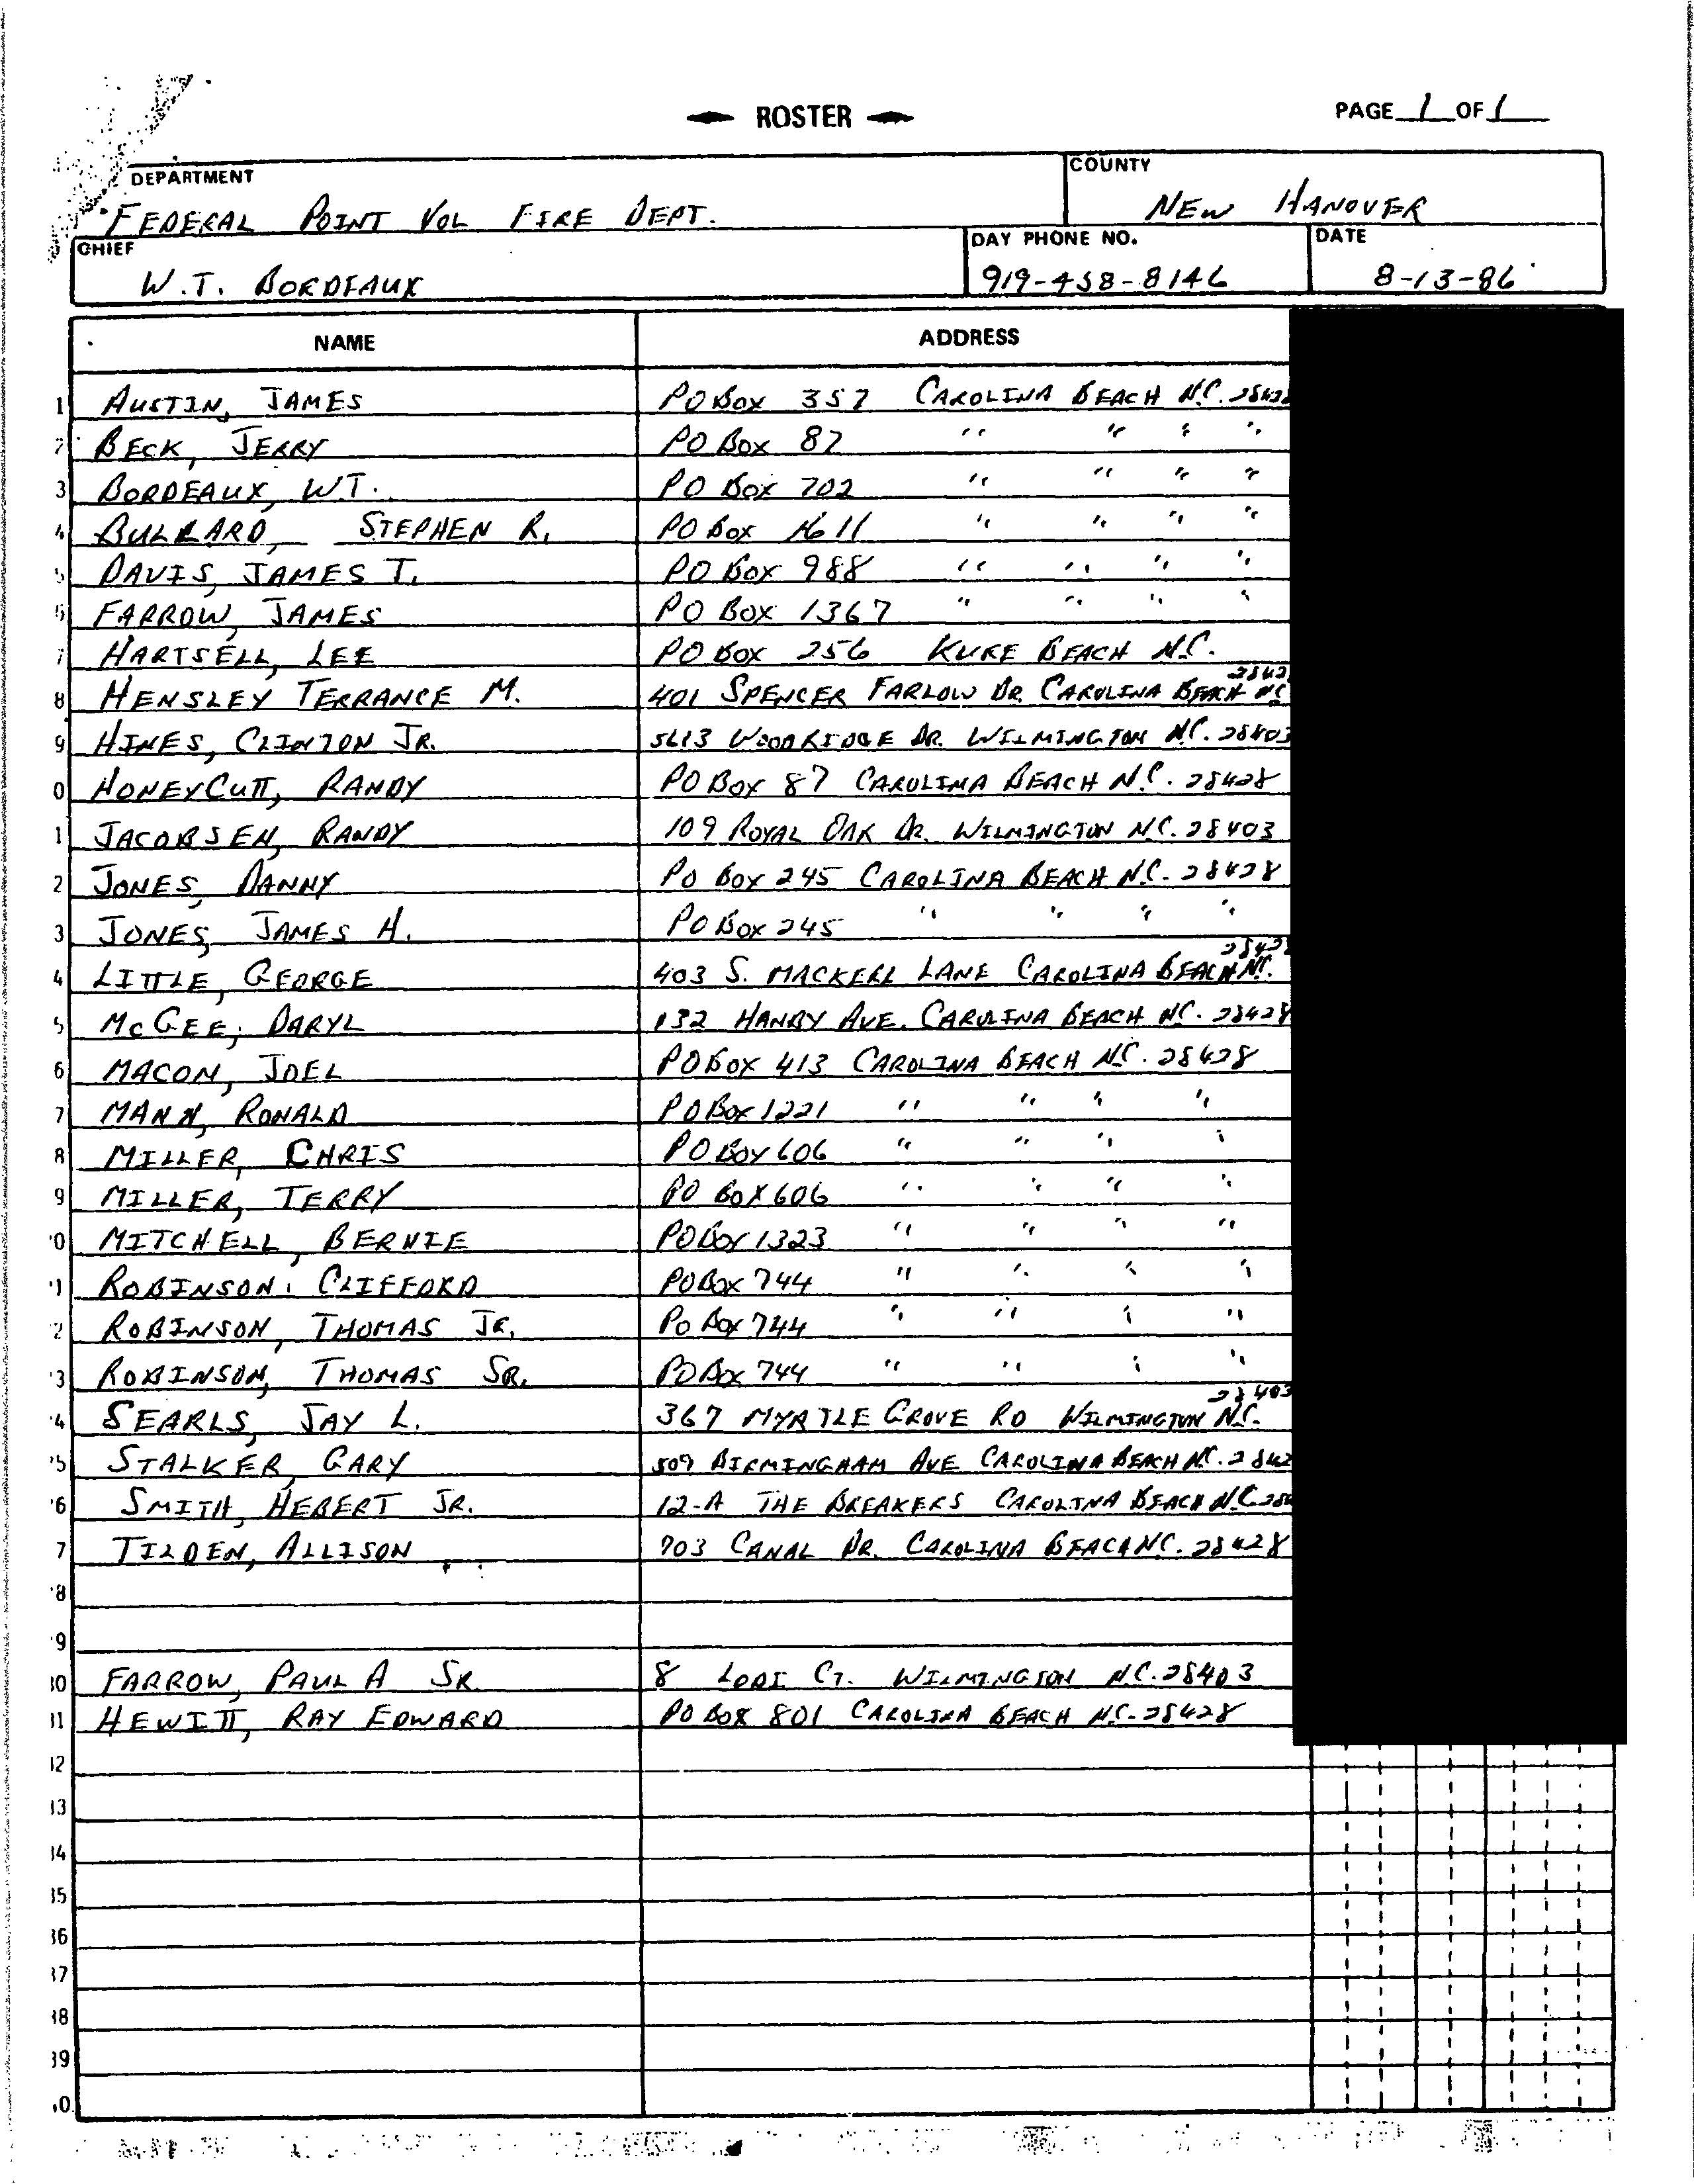 ROSTER
PAGE 1 OF 1
DEPARTMENT
FEDERAL POINT VOL FIRE DEPT.
COUNTY
NEW HANOVER
CHIEF
W.T. BORDEAUX
DAY PHONE NO.
919-458-8146
DATE
8-13-86
NAME ADDRESS
1 AUSTIN, JAMES PO BOX 357 CAROLINA BEACH N.C. 28428
2 BECK, JERRY PO BOX 87 " " " "
3 BORDEAUX, W.T. PO BOX 702 " " " "
4 BULLARD, STEPHEN R. PO BOX 1611 " " " "
5 DAVIS, JAMES T. PO BOX 988 " " " "
6 FARROW, JAMES PO BOX 1367 " " " "
7 HARTSELL, LEE PO BOX 256 KURE BEACH N.C.
8 HENSLEY TERRANCE M. 401 SPENCER FARLOW DR. CAROLINA BEACH NC 2842
9 HINES, CLINTON JR. 5613 WOODRIDGE DR. WILMINGTON N.C. 28403
0 HONEYCUTT, RANDY PO BOX 87 CAROLINA BEACH N.C. 28428
1 JACOBSEN, RANDY 109 ROYAL OAK DR. WILMINGTON N.C. 28403
2 JONES, DANNY PO BOX 245 CAROLINA BEACH N.C. 28428
3 JONES, JAMES H. PO BOX 245 " " " "
4 LITTLE, GEORGE 403 S. MACKERL LANE CAROLINA BEACH NC. 28428
5 McGEE, DARYL 132 HANBY AVE. CAROLINA BEACH NC. 28428
6 MACON, JOEL PO BOX 413 CAROLINA BEACH N.C. 28428
7 MANN, RONALD PO BOX 1221 " " " "
8 MILLER, CHRIS PO BOX 606 " " " "
9 MILLER, TERRY PO BOX 606 " " " "
0 MITCHELL, BERNIE PO BOX 1323 " " " "
1 ROBINSON, CLIFFORD PO BOX 744 " " " "
2 ROBINSON, THOMAS JR. PO BOX 744 " " " "
3 ROBINSON, THOMAS SR. PO BOX 744 " " " "
4 SEARLS, JAY L. 367 MYRTLE GROVE RD WILMINGTON N.C. 28403
5 STALKER, GARY 509 BIRMINGHAM AVE CAROLINA BEACH NC. 2842
6 SMITH, HEBERT JR. 12-A THE BREAKERS CAROLINA BEACH N.C. 284
7 TILDEN, ALLISON 703 CANAL DR. CAROLINA BEACH NC. 28428
8
9
30 FARROW, PAUL A SR. 8 LODI CT. WILMINGTON N.C. 28403
31 HEWITT, RAY EDWARD PO BOX 801 CAROLINA BEACH N.C. 28428
32
33
34
35
36
37
38
39
0